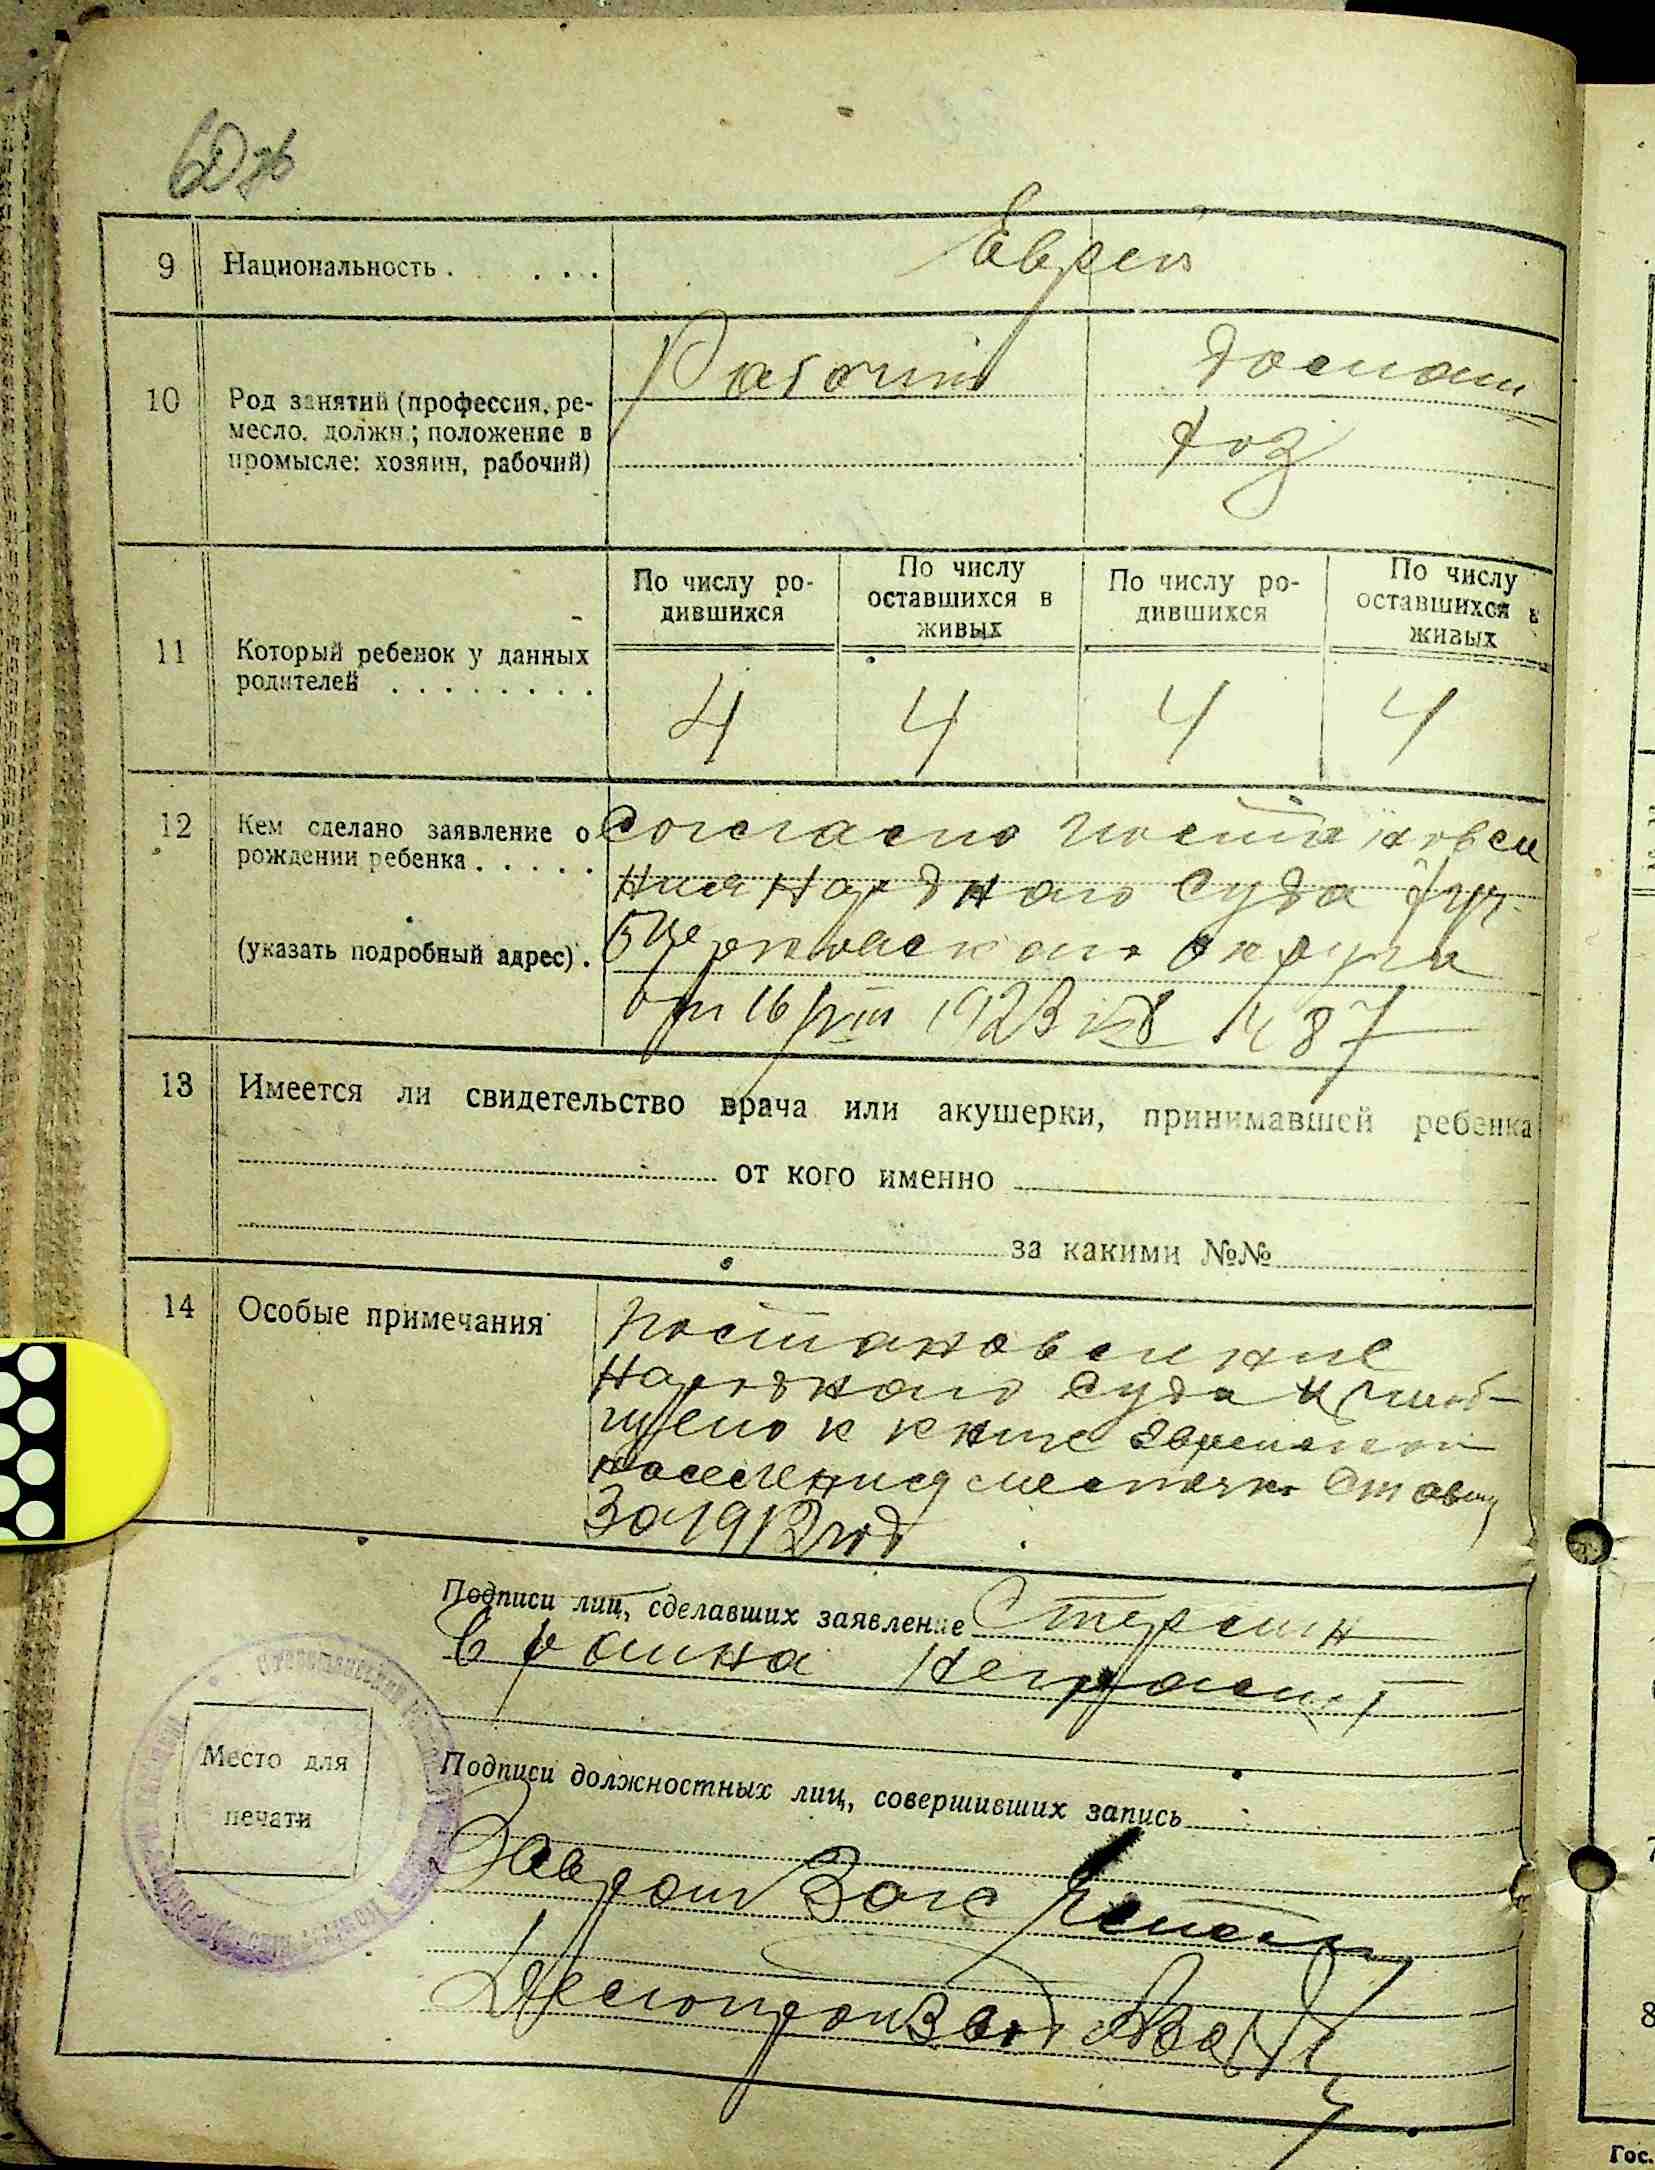 60 об
9 Национальность . . . . Еврей
Рабочий Домаш
10 Род занятий (профессия, ре-
месло, должн.; положение в
промысле: хозяин, рабочий)
хоз
11 Который ребенок у данных
родителей . . . . . . . .
По числу ро-
дившихся
По числу
оставшихся в
живых
По числу ро-
дившихся
По числу
оставшихся в
живых
4 4 4 4
12 Кем сделано заявление о
рождении ребенка . . . . .
(указать подробный адрес) .
Согласно постановле
ния Нардного Суда 7 уч.
Б Церковского округа
от 16/VIII 1923 № 487
13 Имеется ли свидетельство врача или акушерки, принимавшей ребенка
от кого именно
за какими №№
14 Особые примечания
Постановление
Нардного Суда приоб-
щено к книге еврейского
населения местечка Ставищ
За 1912 год
Подписи лиц, сделавших заявление
Место для
печати
Подписи должностных лиц, совершивших запись
Завром Загс
Делопроизвод
Гос.
8